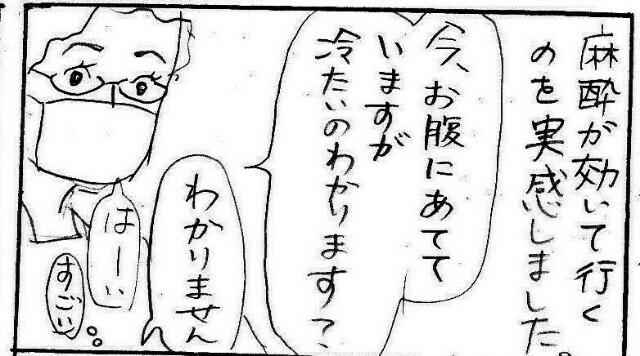 麻酔が効いて行く
のを実感しました。
今、お腹にあてて
いますが
冷たいのわかります?
わかりません
はーい
すごい